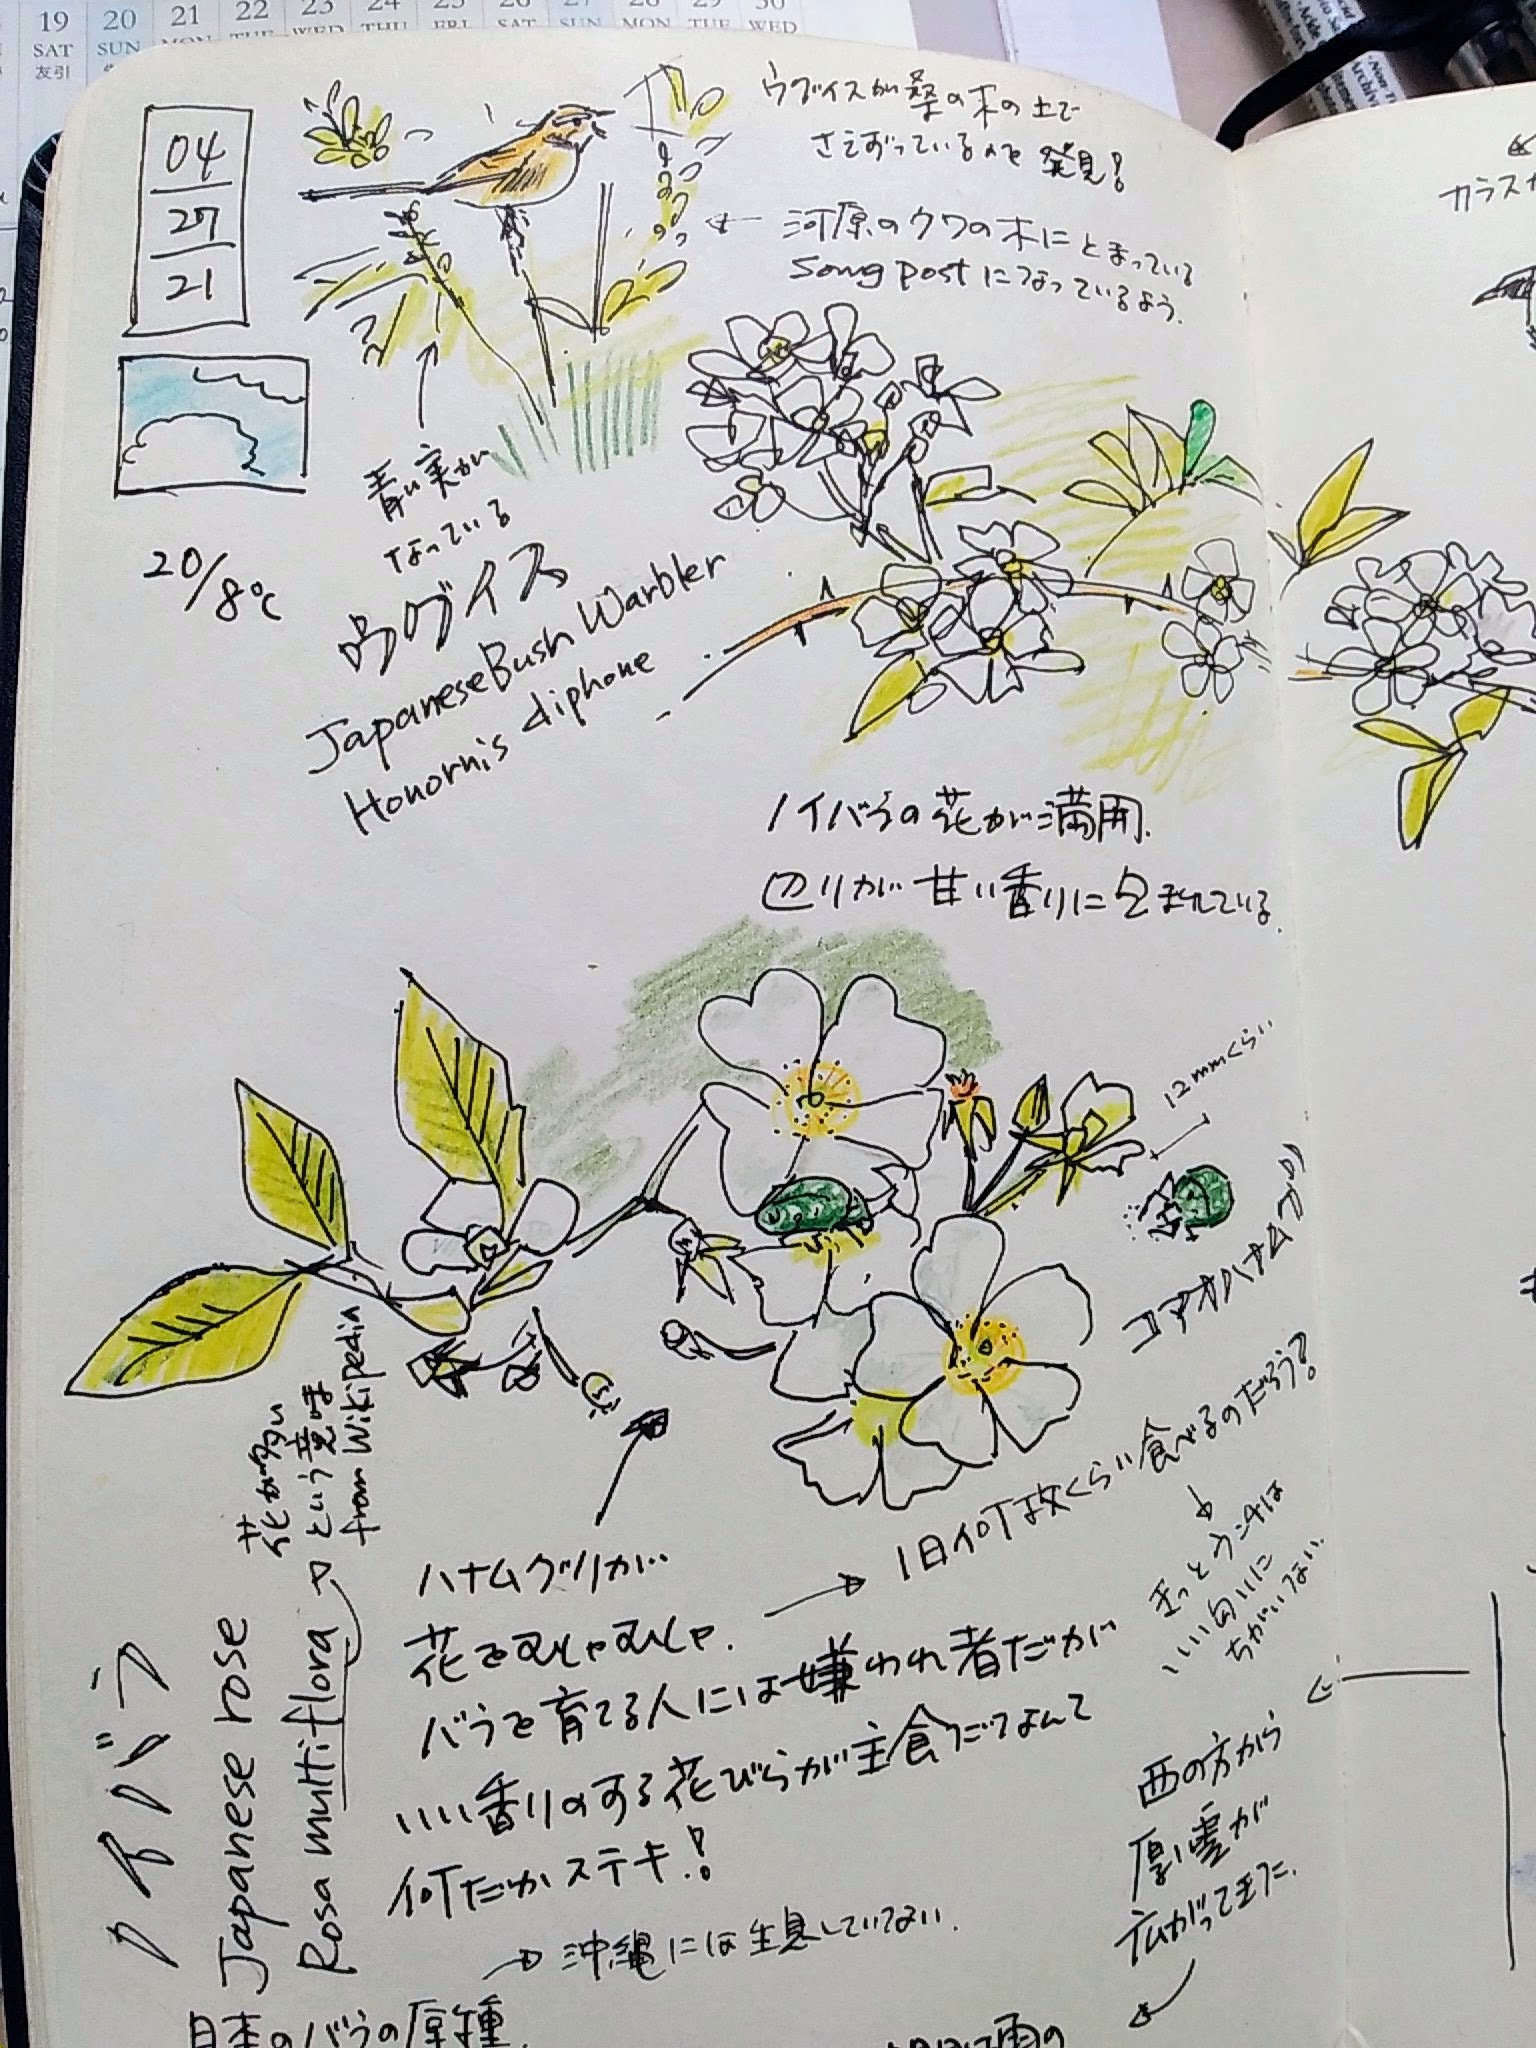 19 20 21 22 23 24 25 26 27 28 29 30
SAT SUN MON TUE WED THU FRI SAT SUN MON TUE WED
友引
04
27
21
20/8℃
ウグイスが桑の木の上で
さえずっているのを発見!
河原のクワの木にとまっている
song postになっているよう.
青い実が
なっている
ウグイス
Japanese Bush Warbler
Honornis diphone
カラス
ノイバラの花が満開.
辺りが甘い香りに包まれている.
12mmくらい
コアオハナムグリ
花が多い
という意味
from Wikipedia
ノイバラ
Japanese rose
Rosa multiflora
ハナムグリが…
花をむしゃむしゃ.
1日何枚くらい食べるのだろう?
きっとウンチは
いい匂いに
ちがいない.
バラを育てる人には嫌われ者だが
いい香りのする花びらが主食だなんて
何だかステキ!
西の方から
厚い雲が
広がってきた.
沖縄には生息していない.
日本のバラの原種.
雨の